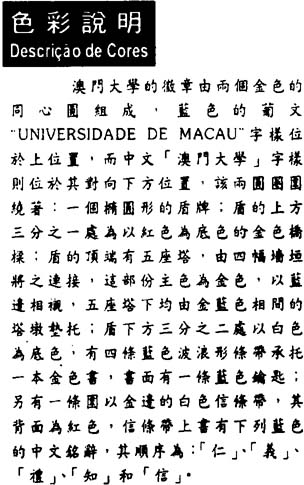 色彩說明
Descrição de Cores
澳門大學的徽章由兩個金色的
同心圓組成，藍色的葡文
"UNIVERSIDADE DE MACAU"字樣位
於上位置，而中文「澳門大學」字樣
則位於其對向下方位置，該兩圓圈圍
繞著：一個橢圓形的盾牌；盾的上方
三分之一處為以紅色為底色的金色橋
樑；盾的頂端有五座塔，由四幅墻垣
將之連接，這部份主色為金色，以藍
邊相襯，五座塔下均由金藍色相間的
塔墩墊托；盾下方三分之二處以白色
為底色，有四條藍色波浪形條帶承托
一本金色書，書面有一條藍色鑰匙；
另有一條圍以金邊的白色信條帶，其
背面為紅色，信條帶上書有下列藍色
的中文銘辭，其順序為：「仁」、「義」、
「禮」、「知」和「信」。